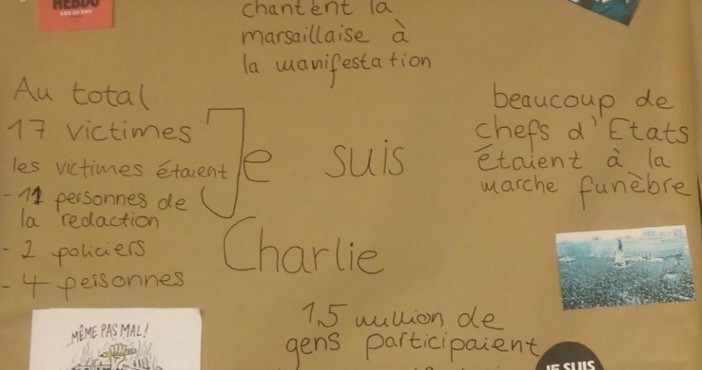 HEBDO
chantent la
marsaillaise à
la manifestation
Au total
17 victimes
les victimes étaient
- 11 personnes de
la redaction
- 2 policiers
- 4 personnes
Je suis
Charlie
beaucoup de
chefs d'Etats
étaient à la
marche funèbre
MÊME PAS MAL!
1,5 million de
gens participaient
JE SUIS